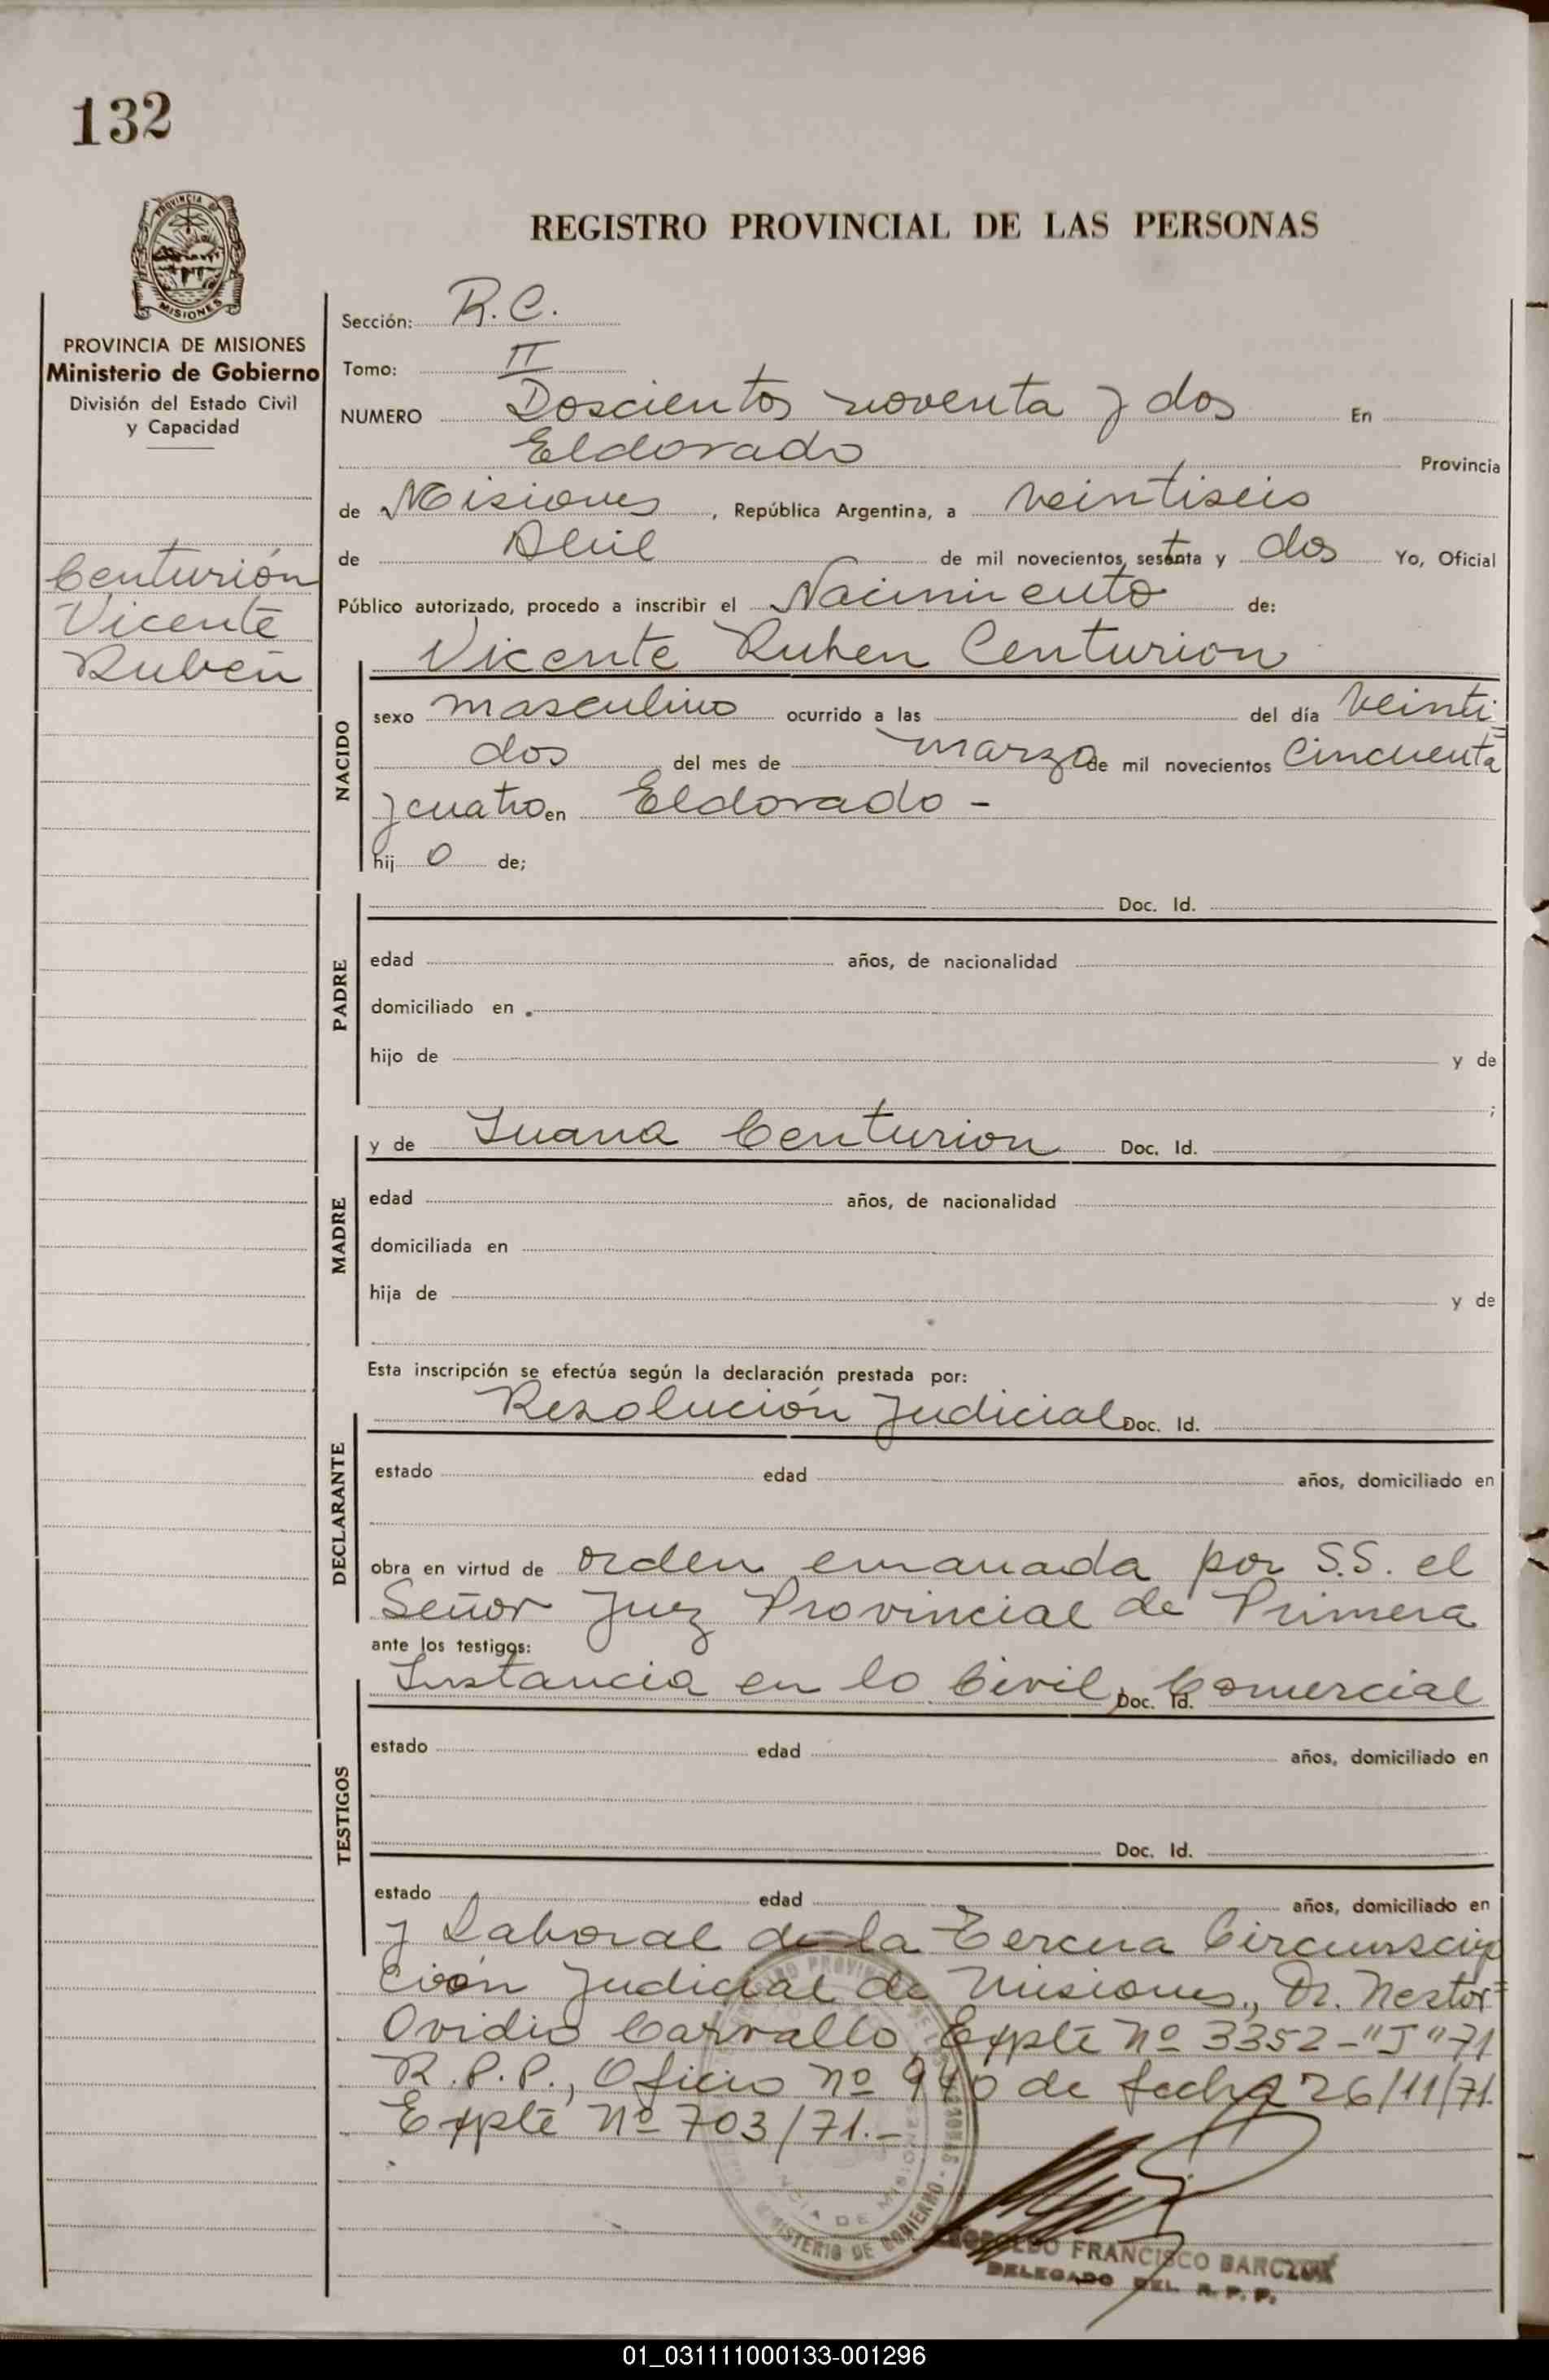 132
PROVINCIA DE
MISIONES
REGISTRO PROVINCIAL DE LAS PERSONAS
PROVINCIA DE MISIONES
Ministerio de Gobierno
División del Estado Civil
y Capacidad
Centurión
Vicente
Rubén
Sección: R.C.
Tomo: II
NUMERO Doscientos noventa y dos En
Eldorado Provincia
de Misiones, República Argentina, a veintiseis
de Abril de mil novecientos setenta y dos Yo, Oficial
Público autorizado, procedo a inscribir el Nacimiento de:
Vicente Ruben Centurion
NACIDO
sexo masculino ocurrido a las del día veinti
dos del mes de marzo de mil novecientos cincuenta
y cuatro en Eldorado -
hij o de;
PADRE
Doc. Id.
edad años, de nacionalidad
domiciliado en
hijo de y de
;
MADRE
y de Juana Centurion Doc. Id.
edad años, de nacionalidad
domiciliada en
hija de y de
Esta inscripción se efectúa según la declaración prestada por:
DECLARANTE
Resolución Judicial Doc. Id.
estado edad años, domiciliado en
obra en virtud de orden emanada por S.S. el
Señor Juez Provincial de Primera
ante los testigos:
TESTIGOS
Instancia en lo Civil, Comercial Doc. Id.
estado edad años, domiciliado en
Doc. Id.
estado edad años, domiciliado en
y Laboral de la Tercera Circunscrip
ción Judicial de Misiones, Dr. Nestor
Ovidio Carvallo, Expte Nº 3352-"J"71
R.P.P., Oficio nº 940 de fecha 26/11/71.
Expte Nº 703/71.-
MINISTERIO DE GOBIERNO
LEOPOLDO FRANCISCO BARCZUK
DELEGADO DEL R.P.P.
01_031111000133-001296